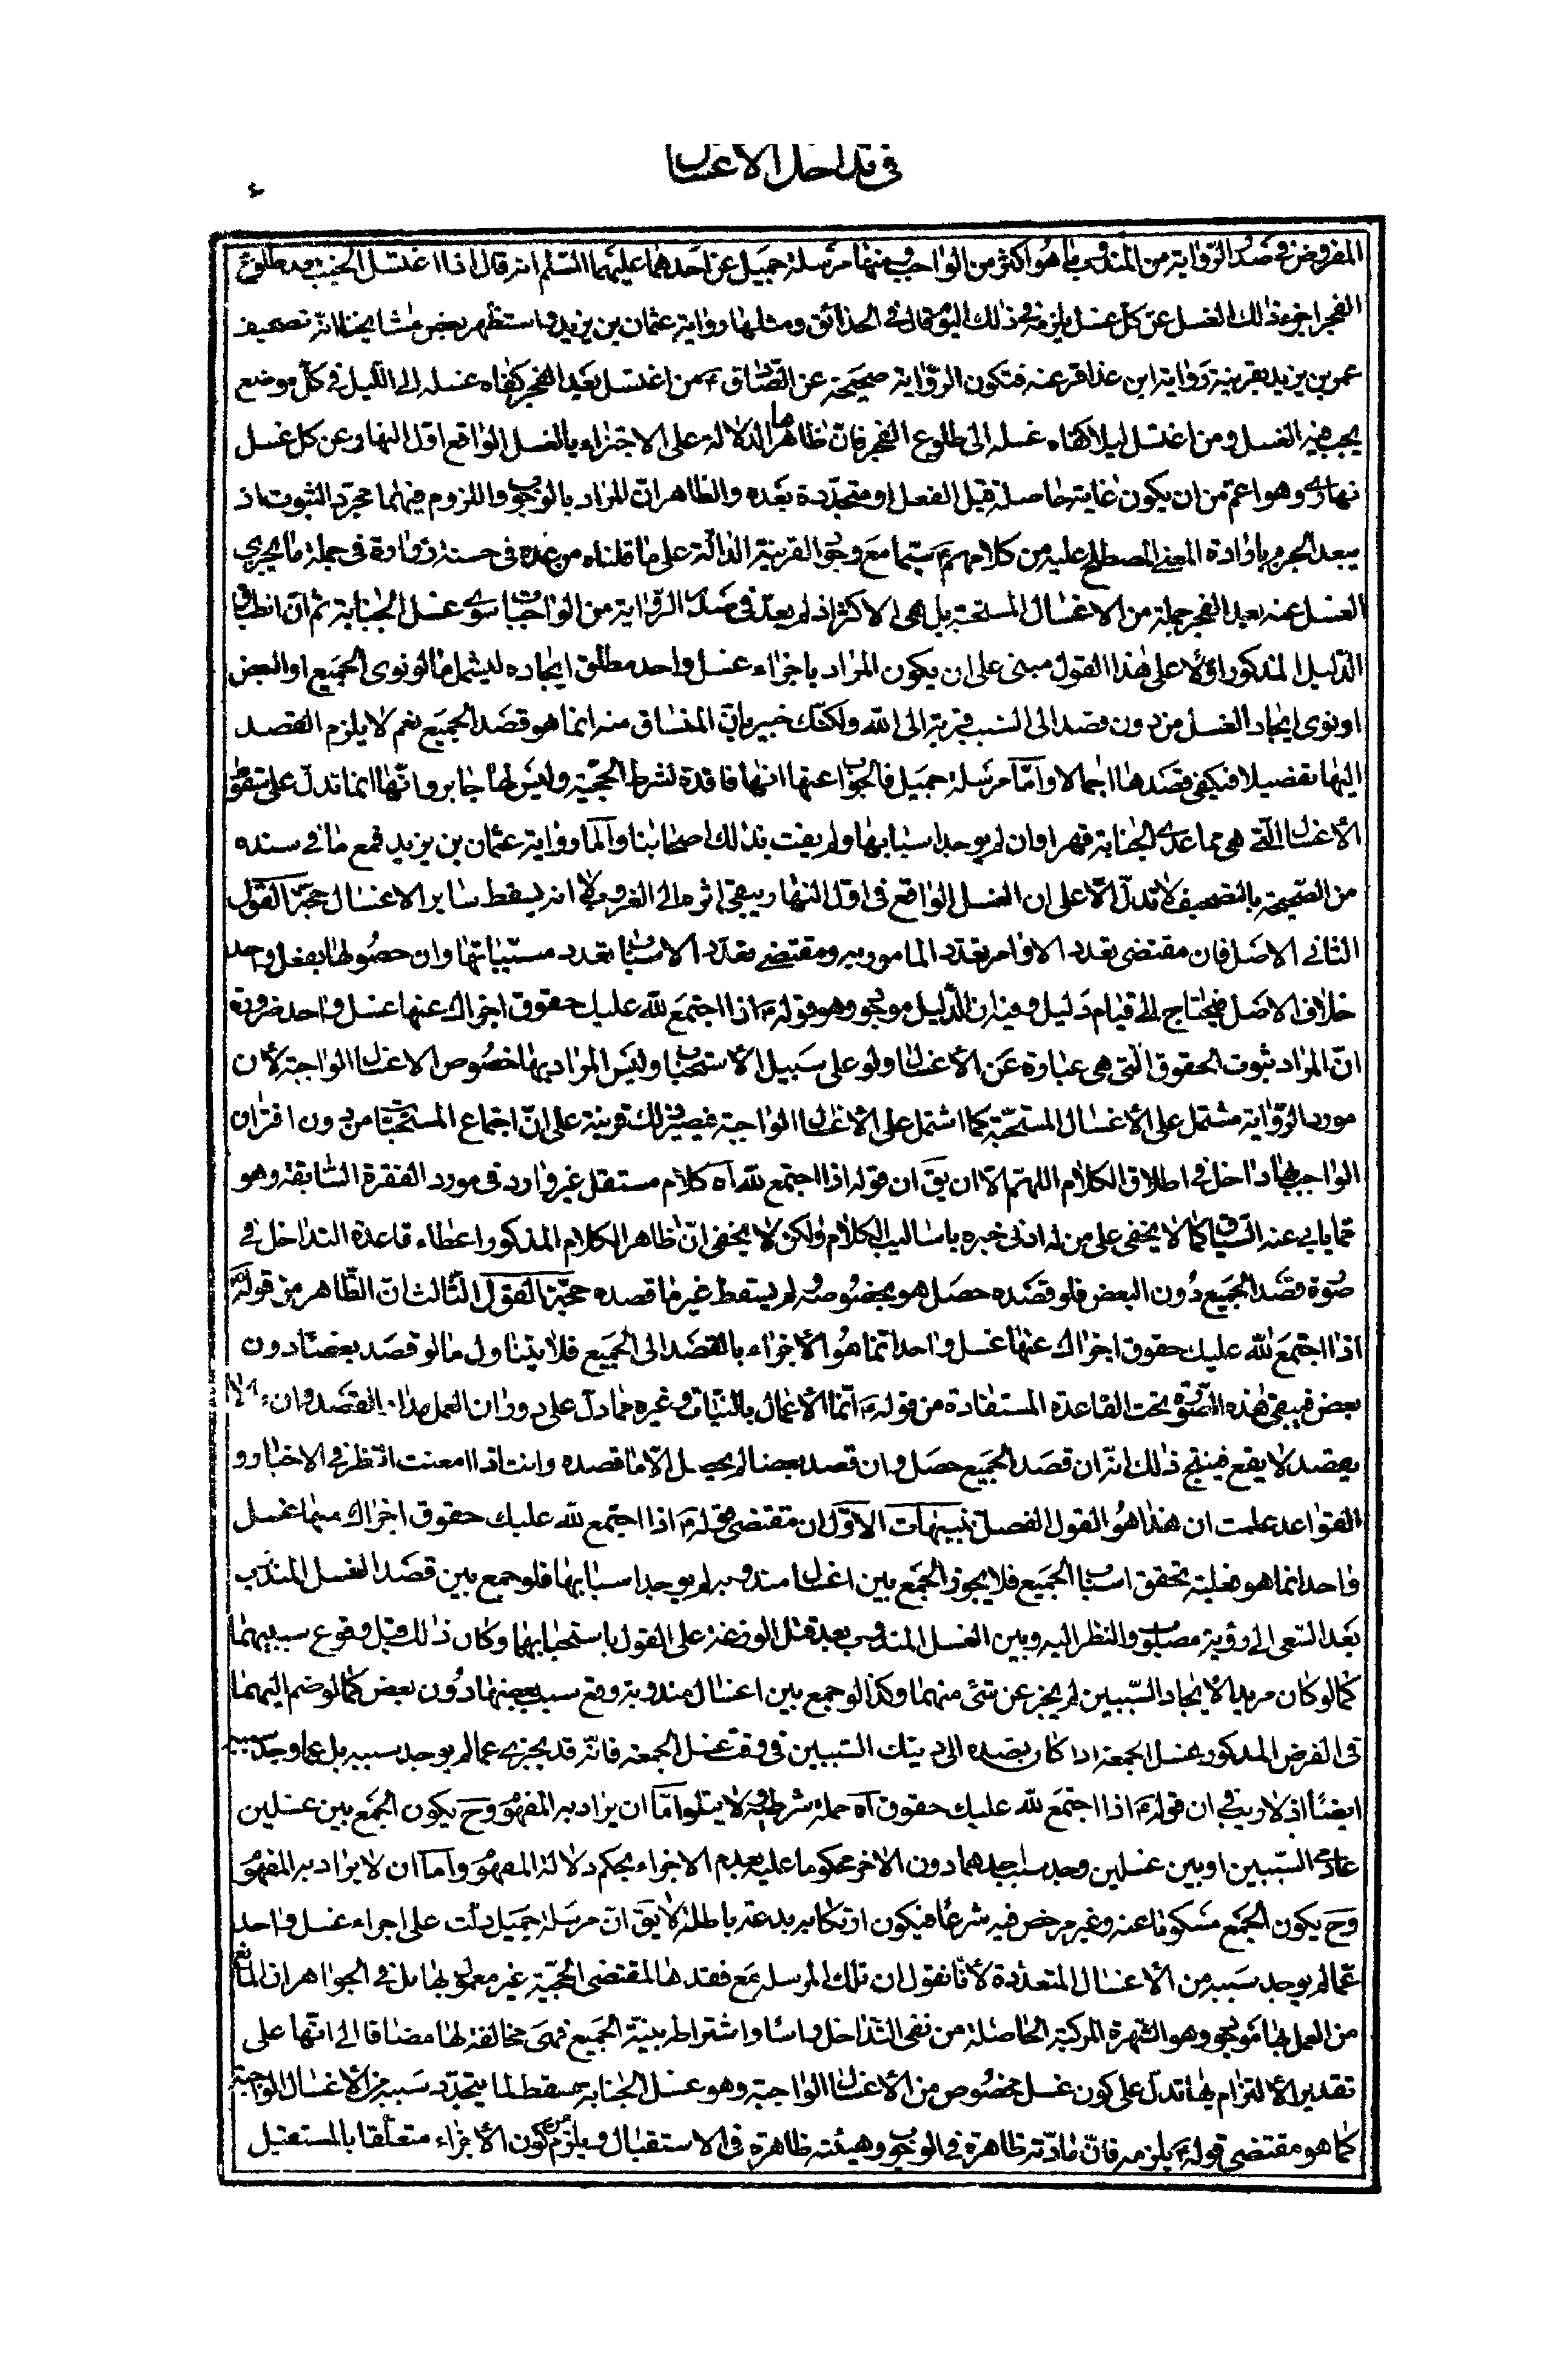 في تداخل الاغسال
المفروض في صدر الرّواية من المندوب ما هو اكثر من الواجب ومنها مرسلة جميل عن احدهما عليهما السّلم انه قال اذا اغتسل الجنب بعد طلوع
الفجر اجزء ذٰلك الغسل عن كلّ غسل يلزمه في ذٰلك اليوم قال في الحدائق ومثلها رواية عثمان بن يزيد واستظهر بعض مشايخنا انّه تصحيف
عمر بن يزيد بقرينة رواية ابن عذافر عنه فتكون الرّواية صحيحة عن الصّادق ع من اغتسل بعد الفجر كفاه غسله الى اللّيل في كلّ موضع
يجب فيه الغسل ومن اغتسل ليلا كفاه غسله الى طلوع الفجر فانّ ظاهرها الدلالة على الاجتزاء بالغسل الواقع اوّل النهار عن كل غسل
نهاري وهو اعمّ من ان يكون غايته حاصلة قبل الفعل او متجدّدة بعده والظاهر انّ المراد بالوجوب واللزوم فيهما مجرّد الثبوت اذ
يبعد الجزم بارادة المعنى المصطلح عليه من كلامهم ع سيّما مع وجود القرينة الدّالّة على ما قلناه من عدّه في حسنة زرارة في جملة ما يجزي
الغسل عنه بعد الفجر جملة من الاغسال المستحبّة بل هي الاكثر اذ لم يعدّ في صدر الرّواية من الواجبات سوى غسل الجنابة ثم انّ انطباق
الدّليل المذكور اوّلا على هٰذا القول مبنى على ان يكون المراد باجزاء غسل واحد مطلق ايجاده ليشمل ما لو نوى الجميع او البعض
او نوى ايجاد الغسل من دون قصد الى السّبب قربة الى اللّه ولكنّك خبير بانّ المنساق منه انما هو قصد الجميع نعم لا يلزم القصد
اليها تفضيلا فيكفي قصدها اجمالا وامّا مرسلة جميل فالجواب عنها انها فاقدة لشرط الحجيّة وليس لها جابر وانّها انما تدلّ على سقوط
الأغسال الّتي هي مما عدى الجنابة قهرا وان لم يوجد اسبابها ولم يفت بذلك اصحابنا وامّا رواية عثمان بن يزيد فمع ما في سنده
من الصّحيحة بالتصحيف لا تدلّ الّا على ان الغسل الواقع في اوّل النهار يبقى اثره الى الغروب لا انه يسقط سائر الاغسال حجّة القول
الثاني الاصل فان مقتضى تعدد الاوامر تعدّد المامور به ومقتضى تعدّد الاسباب تعدد مسبّباتها وان حصولها بفعل واحد
خلاف الاصل فيحتاج الى قيام دليل وفيه انّ الدّليل موجود وهو قوله ع اذا اجتمع للّه عليك حقوق اجزاك عنها غسل واحد ضرورة
انّ المراد ثبوت الحقوق الّتي هي عبارة عن الأغسال ولو على سبيل الأستحباب وليس المراد بها خصوص الاغسال الواجبة لأن
مورد الرّواية مشتمل على الأغسال المستحبّة كما اشتمل على الأغسال الواجبة فيصير ذلك قرينة على انّ اجتماع المستحبّات من دون اقتران
الواجب بها داخل في اطلاق الكلام اللهمّ الّا ان يقَ ان قوله اذا اجتمع للّه اه كلام مستقل غير وارد في مورد الفقرة السّابقة وهو
ممّا يابى عنه السّياق كما لا يخفى على من له ادنى خبره باساليب الكلام ولكن لا يخفى انّ ظاهر الكلام المذكور اعطاء قاعدة التداخل في
صورة قصد الجميع دون البعض فلو قصده حصل هو بخصوصه لم يسقط غير ما قصده حجّة القول الثّالث انّ الظّاهر من قوله ع
اذا اجتمع للّه عليك حقوق اجزاك عنها غسل واحد انّما هو الأجزاء بالقصد الى الجميع فلا يتناول ما لو قصد بعضا دون
بعض فيبقى هٰذه الصّورة تحت القاعدة المستفادة من قوله ع انّما الأعمال بالنيّات وغيره ممّا دلّ على دوران العمل مدار القصد وان ما لا
يقصد لا يقع فينتج ذٰلك انّه ان قصد الجميع حصل وان قصد بعضا لم يحصل الّا ما قصده وانت اذا امعنت النّظر في الاخبار و
القواعد علمت ان هذا هو القول الفصل تنبيهات الاوّل ان مقتضى قوله ع اذا اجتمع للّه عليك حقوق اجزاك عنها غسل
واحد انما هو فعلية تحقق اسباب الجميع فلا يجوز الجمع بين اغسال مندوبة لم يوجد اسبابها فلو جمع بين قصد الغسل المندوب
بعد السّعى الى رؤية مصلوب والنظر اليه وبين الغسل المندوب بعد قتل الوزغة على القول باستحبابهما وكان ذٰلك قبل وقوع سببيهما
كما لو كان مريدا لايجاد السّببين لم يجز عن شئ منهما وكذا لو جمع بين اغسال مندوبة وقع سبب بعضها دون بعض كما لو ضم اليهما
في الفرض المذكور غسل الجمعة اذا كان بصدد الى دينك السّببين في وقت غسل الجمعة فانّه قد يجزى عما لم يوجد سببه بل عما وجد سببه
ايضًا اذ لا ريب في ان قوله ع اذا اجتمع للّه عليك حقوق آه جملة شرطية ولا يتلو امّا ان يراد به المفهوم وحَ يكون الجمع بين غسلين
عادمى السّببين او بين غسلين وجد سبب احدهما دون الاخر محكوما عليه بعدم الاجزاء بحكم دلالة المفهوم وامّا ان لا يراد به المفهوم
وحَ يكون الجمع مسكوتا عنه وغير مرخص فيه شرعًا فيكون ارتكابه بدعة باطلة لا يقَ انّ مرسلة جميل دلّت على اجزاء غسل واحد
عمّا لم يوجد سببه من الأغسال المتعدّدة لأنّا نقول ان تلك المرسلة مع فقدها لمقتضى الحجيّة غير معمول بها بل في الجواهر ان المانع
من العمل بها موجود وهو الشّهرة المركبة الحاصلة من نفى التّداخل راسًا واشتراطه بنيّة الجميع فهى مخالفة لها مضافا الى انّها على
تقدير الألتزام بها تدلّ على كون غسل مخصوص من الأغسال الواجبة وهو غسل الجنابة مسقط لما يتجدّد سببه من الأغسال الواجبة
كما هو مقتضى قوله ع يلزمه فانّ مادّته ظاهرة في الوجوب وهيئته ظاهرة في الاستقبال ويلزم من كون الأجزاء متعلّقا بالمستقبل